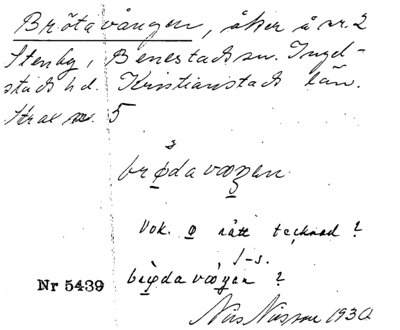 Brötavången, åker å nr. 2
Stenby, Benestads sn. Ingel-
stads hd. Kristianstads län.
Strax 5
brø̀davæŋen
Vok. ø rätt tecknad?
J-s.
Nr 5439 brødavæŋen?
Nils Nilsson 1930